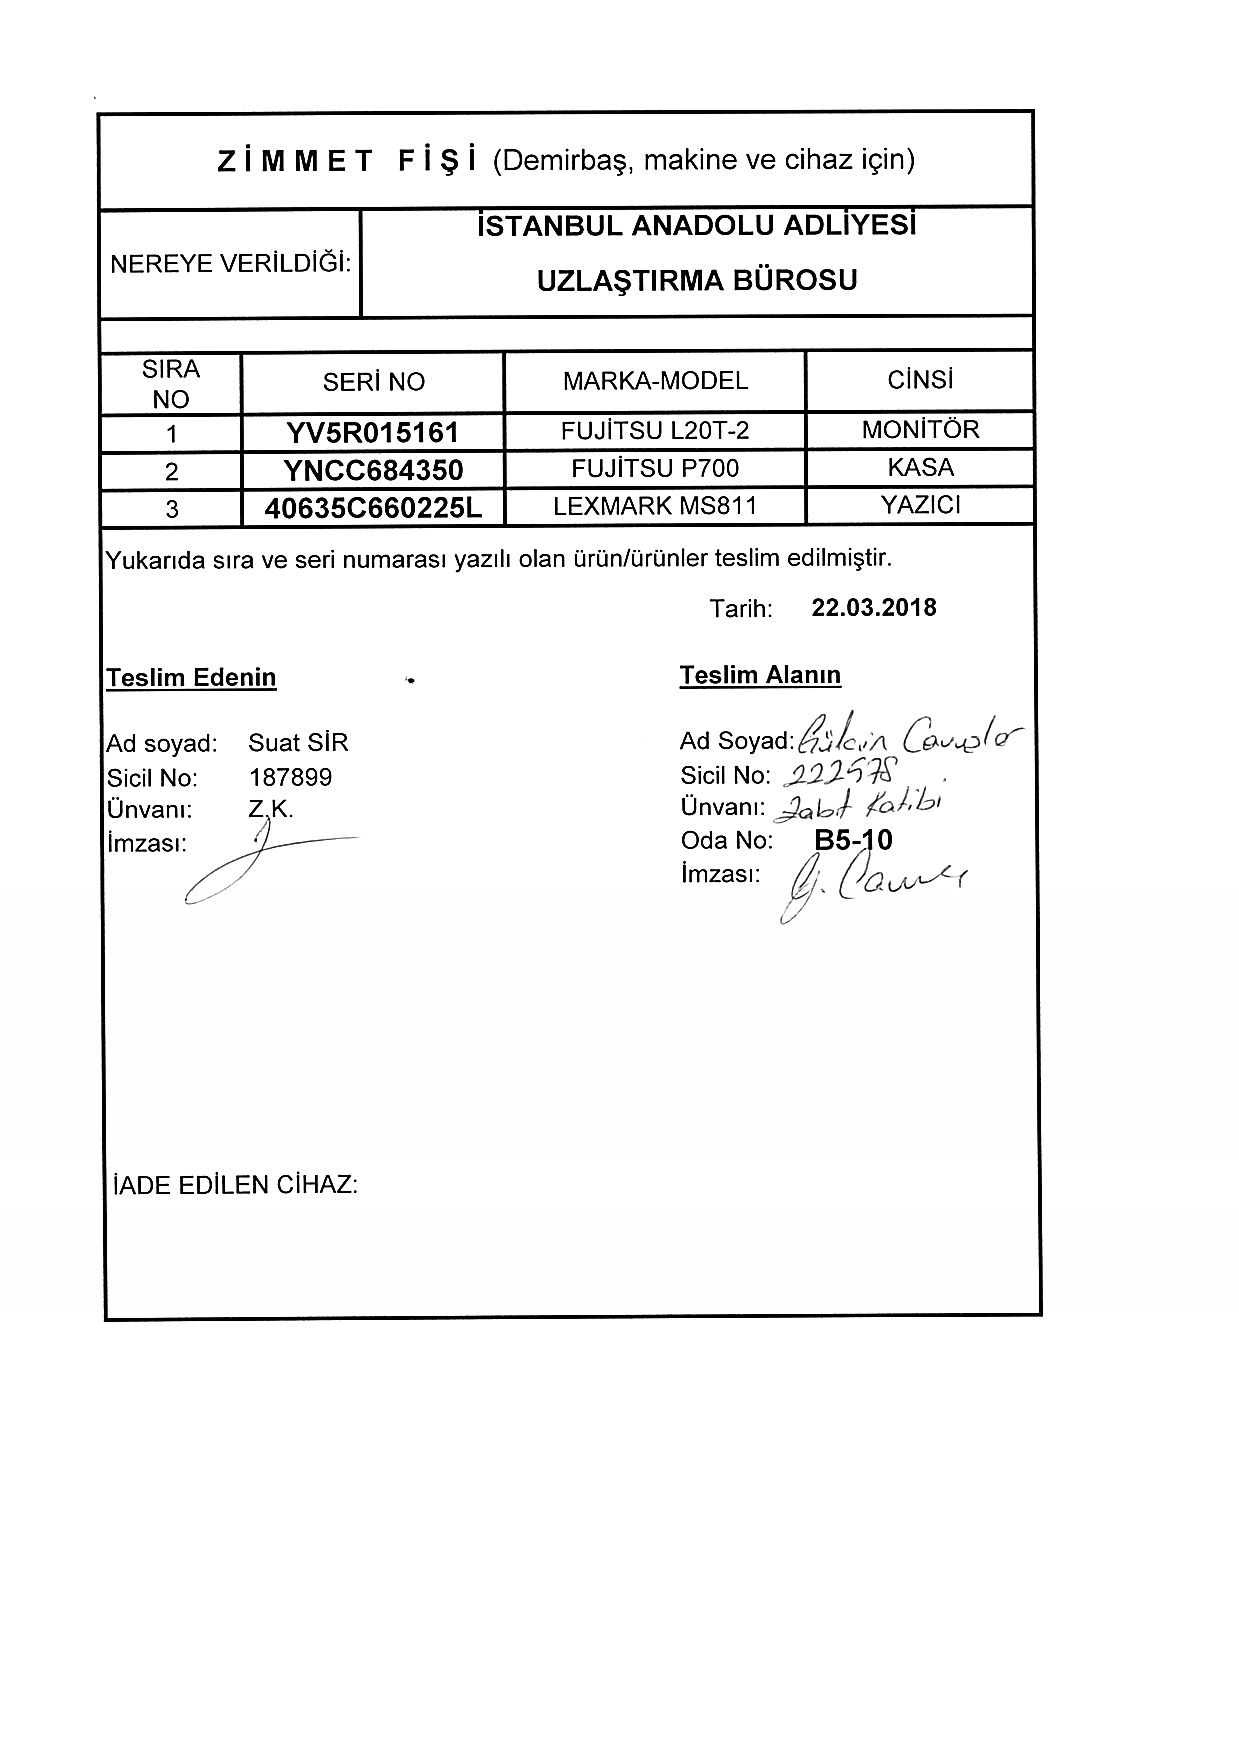 ZİMMET FİŞİ (Demirbaş, makine ve cihaz için)
NEREYE VERİLDİĞİ:
İSTANBUL ANADOLU ADLİYESİ
UZLAŞTIRMA BÜROSU
SIRA NO SERİ NO MARKA-MODEL CİNSİ
1 YV5R015161 FUJİTSU L20T-2 MONİTÖR
2 YNCC684350 FUJİTSU P700 KASA
3 40635C660225L LEXMARK MS811 YAZICI
Yukarıda sıra ve seri numarası yazılı olan ürün/ürünler teslim edilmiştir.
Tarih: 22.03.2018
Teslim Edenin
Ad soyad: Suat SİR
Sicil No: 187899
Ünvanı: Z.K.
İmzası:
Teslim Alanın
Ad Soyad: Gülçin
Sicil No: 222578
Ünvanı: Zabıt Katibi
Oda No: B5-10
İmzası:
İADE EDİLEN CİHAZ: